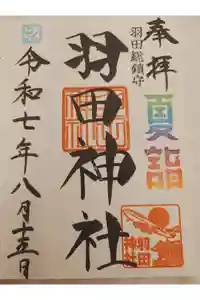 奉拝
夏詣
羽田総鎮守
羽田神社
令和七年八月十五日
羽田
神社